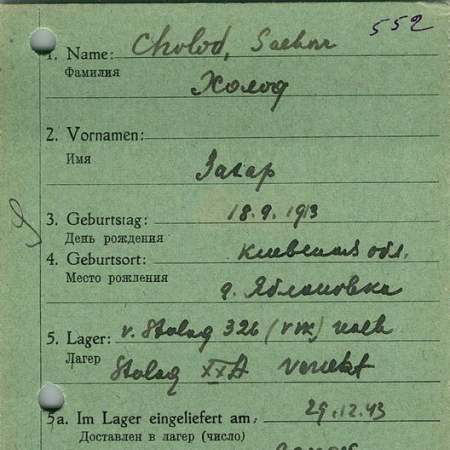 552
1. Name: Cholod, Sachar
Фамилия
Холод
2. Vornamen:
Имя
Захар
3. Geburtstag: 18.9.1913
День рождения
4. Geburtsort: Киевская обл.
Место рождения
д. Яблоновка
5. Lager: v. Stalag 326 (VIK) nach
Лагер
Stalag XXA versetzt
5a. Im Lager eingeliefert am: 29.12.43
Доставлен в лагер (число)